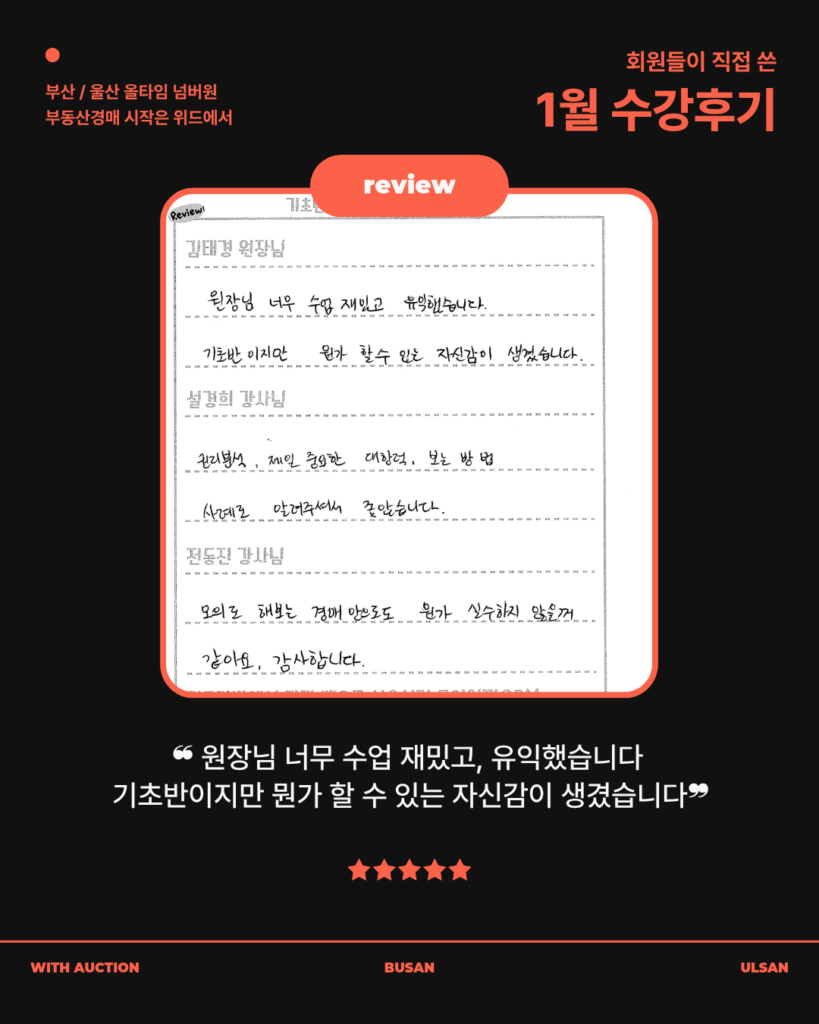 부산 / 울산 올타임 넘버원
부동산경매 시작은 위드에서
회원들이 직접 쓴
1월 수강후기
review
Review!
김태경 원장님
원장님 너무 수업 재밌고 유익했습니다.
기초반이지만 뭔가 할 수 있는 자신감이 생겼습니다.
설경희 강사님
권리분석, 제일 중요한 대항력, 보는 방법
사례로 알려주셔서 좋았습니다.
전동진 강사님
모의로 해보는 경매만으로도 뭔가 실수하지 않을꺼
같아요, 감사합니다.
❝ 원장님 너무 수업 재밌고, 유익했습니다
기초반이지만 뭔가 할 수 있는 자신감이 생겼습니다❞
WITH AUCTION
BUSAN
ULSAN